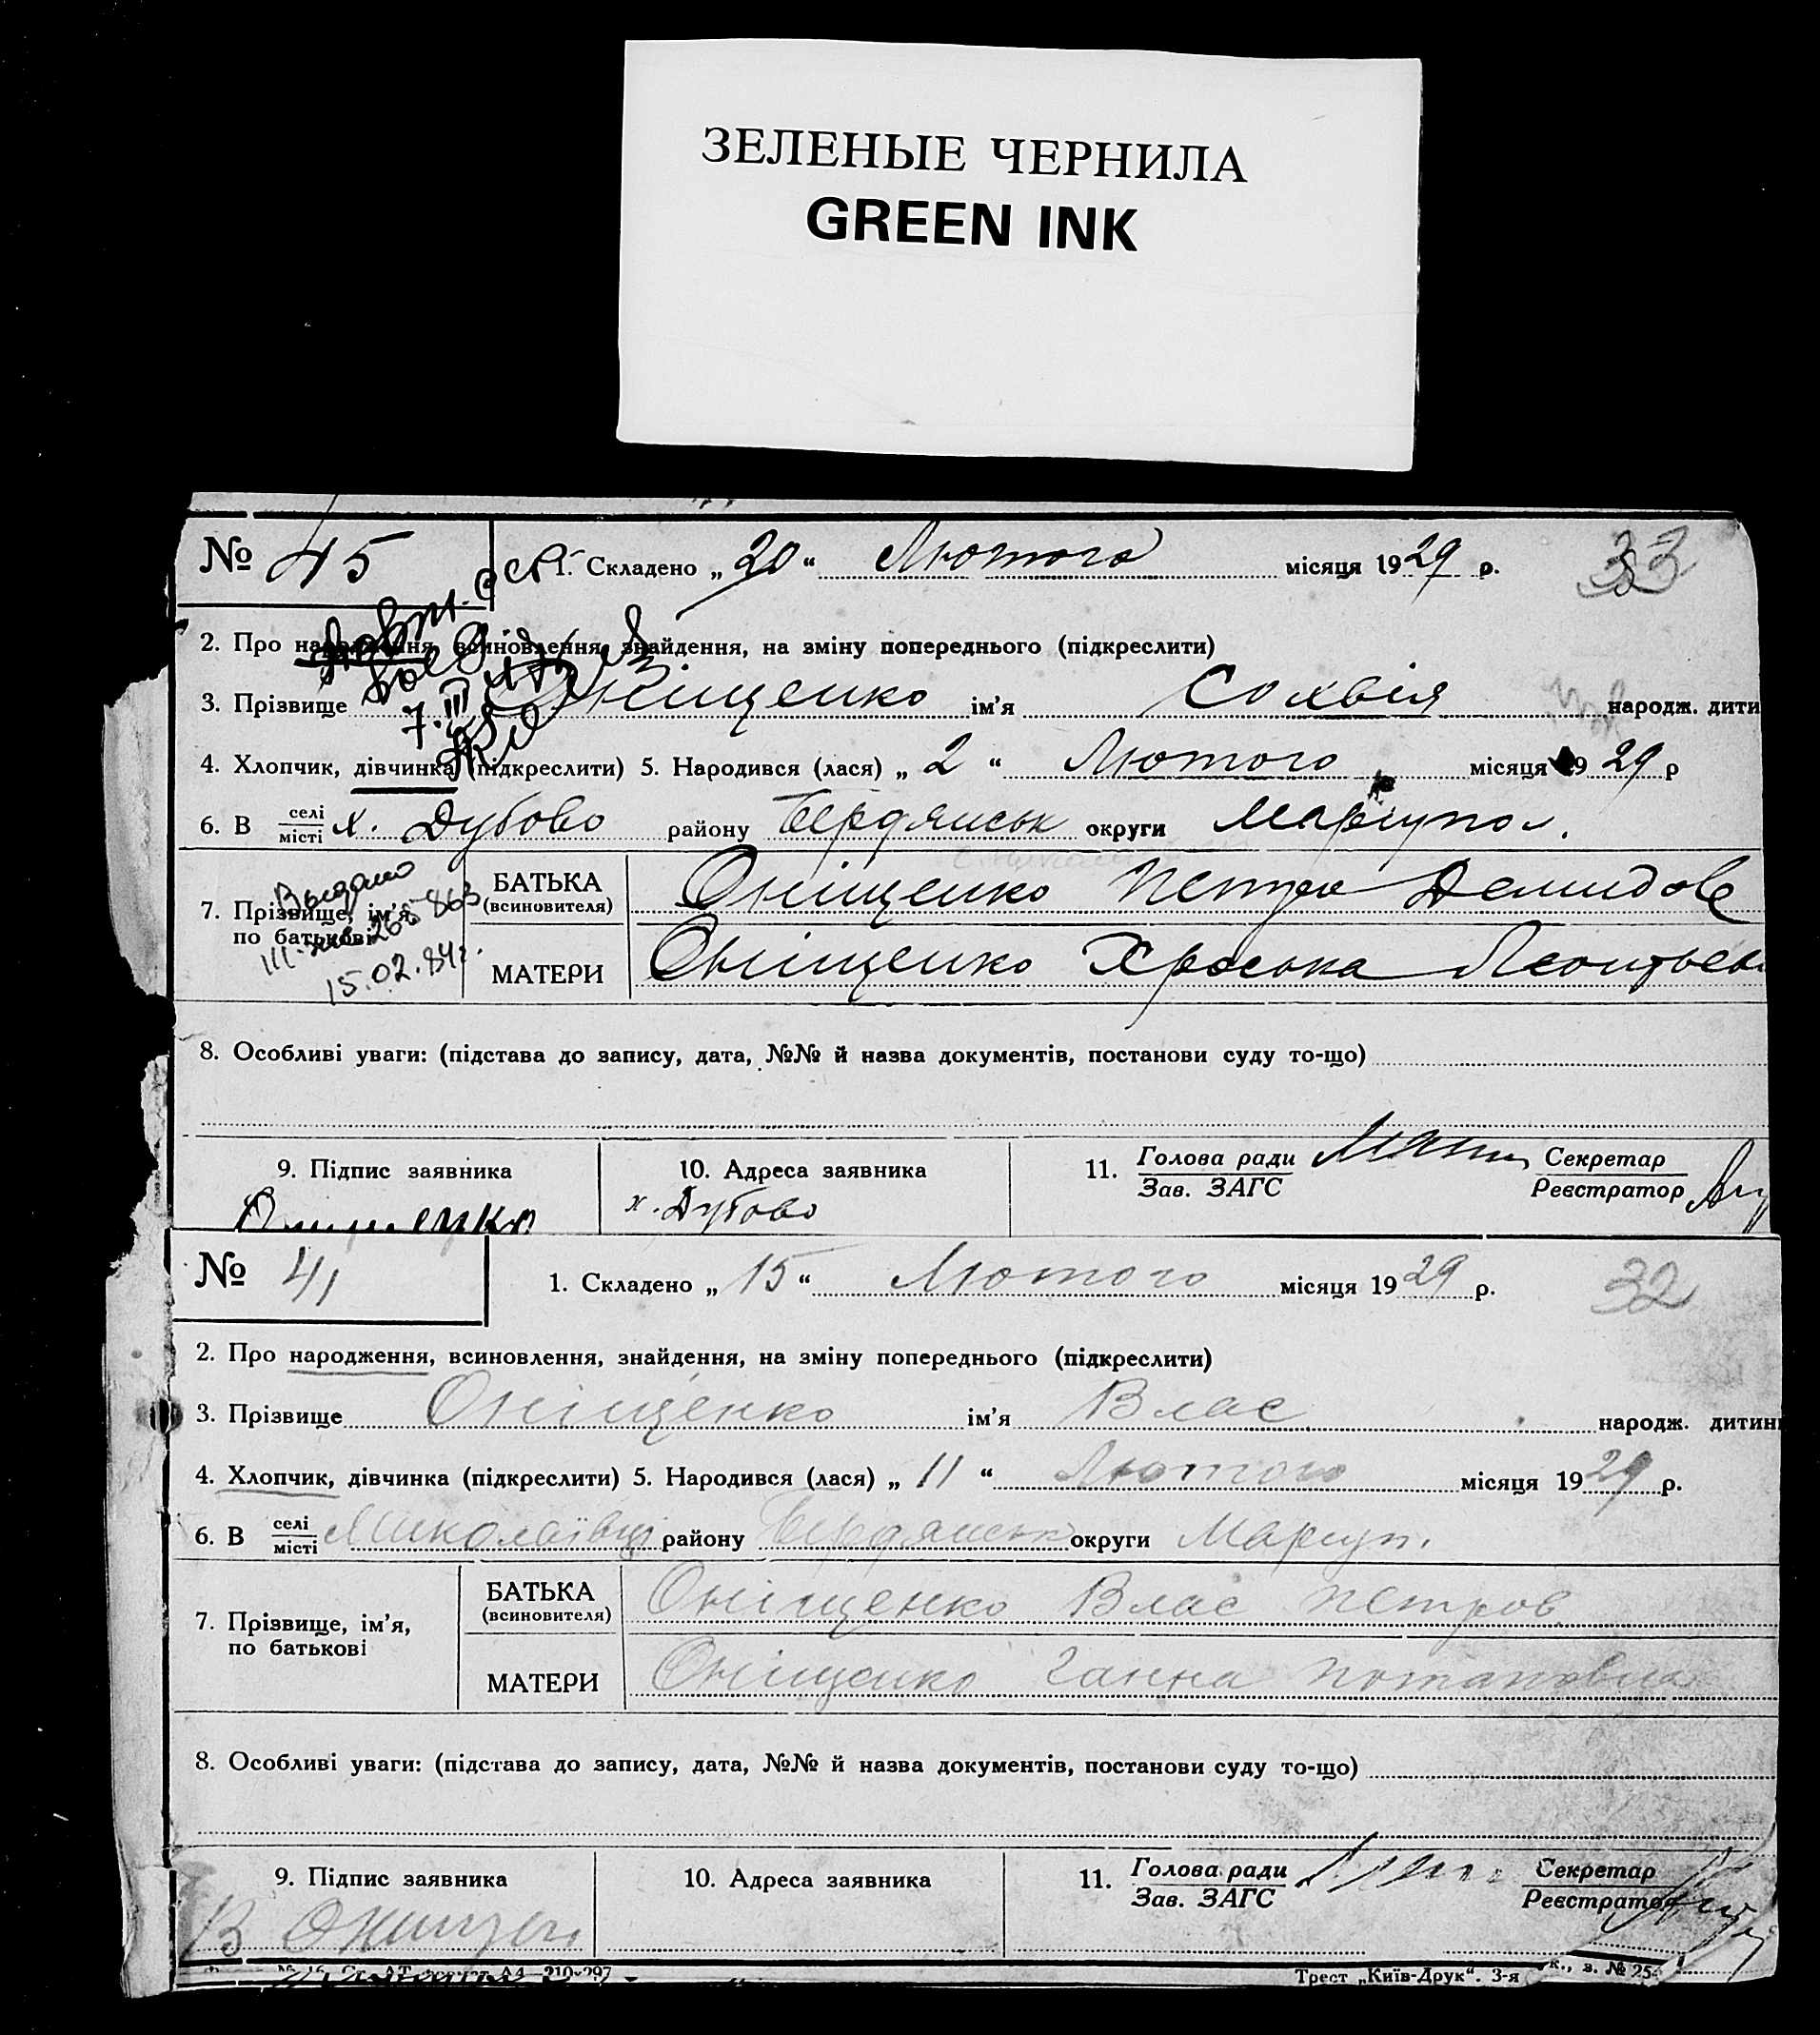 ЗЕЛЕНЫЕ ЧЕРНИЛА
GREEN INK
№ 45
1. Складено „ 20 “ Лютого місяця 1929 р. 33
2. Про народження, всиновлення, знайдення, на зміну попереднього (підкреслити)
3. Прізвище Оніщенко ім’я Сохвія народж. дити
4. Хлопчик, дівчинка (підкреслити) 5. Народився (лася) „ 2 “ Лютого місяця 1929 р
6. В селі місті х. Дубово району Бердянськ округи Маріупол.
Выдано
III- 265863
15.02.84г.
7. Прізвище, ім’я, по батькові
БАТЬКА (всиновителя) Оніщенко Петро Демидов
МАТЕРИ Оніщенко Хроська Леонтьев
8. Особливі уваги: (підстава до запису, дата, №№ й назва документів, постанови суду то-що)
9. Підпис заявника
10. Адреса заявника
х. Дубово
11. Голова ради Зав. ЗАГС
Секретар Реєстратор
№ 41
1. Складено „ 15 “ Лютого місяця 1929 р. 32
2. Про народження, всиновлення, знайдення, на зміну попереднього (підкреслити)
3. Прізвище Оніщенко ім’я Влас народж. дитин
4. Хлопчик, дівчинка (підкреслити) 5. Народився (лася) „ 11 “ Лютого місяця 1929 р.
6. В селі місті Миколаївці району Бердянськ округи Маріуп.
7. Прізвище, ім’я, по батькові
БАТЬКА (всиновителя) Оніщенко Влас Петров
МАТЕРИ Оніщенко Ганна Потаповна
8. Особливі уваги: (підстава до запису, дата, №№ й назва документів, постанови суду то-що)
9. Підпис заявника
10. Адреса заявника
11. Голова ради Зав. ЗАГС
Секретар Реєстратор
А4—210×297
Трест „Київ-Друк“. 3-я